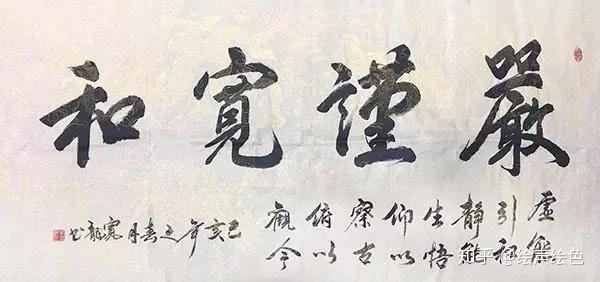 嚴謹寬和
虛能
引和
靜能
生悟
仰以
察古
俯以
觀今
己亥年之春月寬龍书
知乎 @绘声绘色